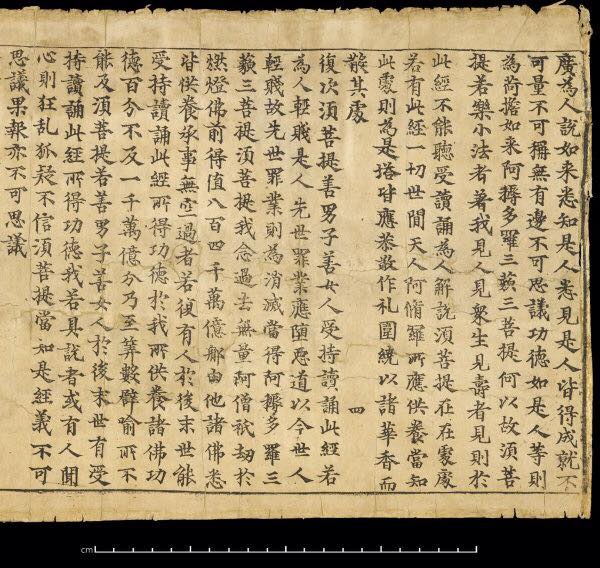 廣為人說如来悉知是人悉見是人皆得成就不
可量不可稱無有邊不可思議功德如是人等則
為荷擔如来阿耨多羅三藐三菩提何以故須菩
提若樂小法者著我見人見衆生見壽者見則於
此經不能聽受讀誦為人解說須菩提在在處處
若有此經一切世間天人阿脩羅所應供養當知
此處則為是塔皆應恭敬作礼圍繞以諸華香而
散其處
四
復次須菩提善男子善女人受持讀誦此經若
為人輕賤是人先世罪業應墮惡道以今世人
輕賤故先世罪業則為消滅當得阿耨多羅三
藐三菩提須菩提我念過去無量阿僧祇劫於
燃燈佛前得值八百四千萬億那由他諸佛悉
皆供養承事無空過者若復有人於後末世能
受持讀誦此經所得功德於我所供養諸佛功
德百分不及一千萬億分乃至筭數譬喻所不
能及須菩提若善男子善女人於後末世有受
持讀誦此經所得功德我若具說者或有人聞
心則狂乱狐疑不信須菩提當知是經義不可
思議果報亦不可思議
cm